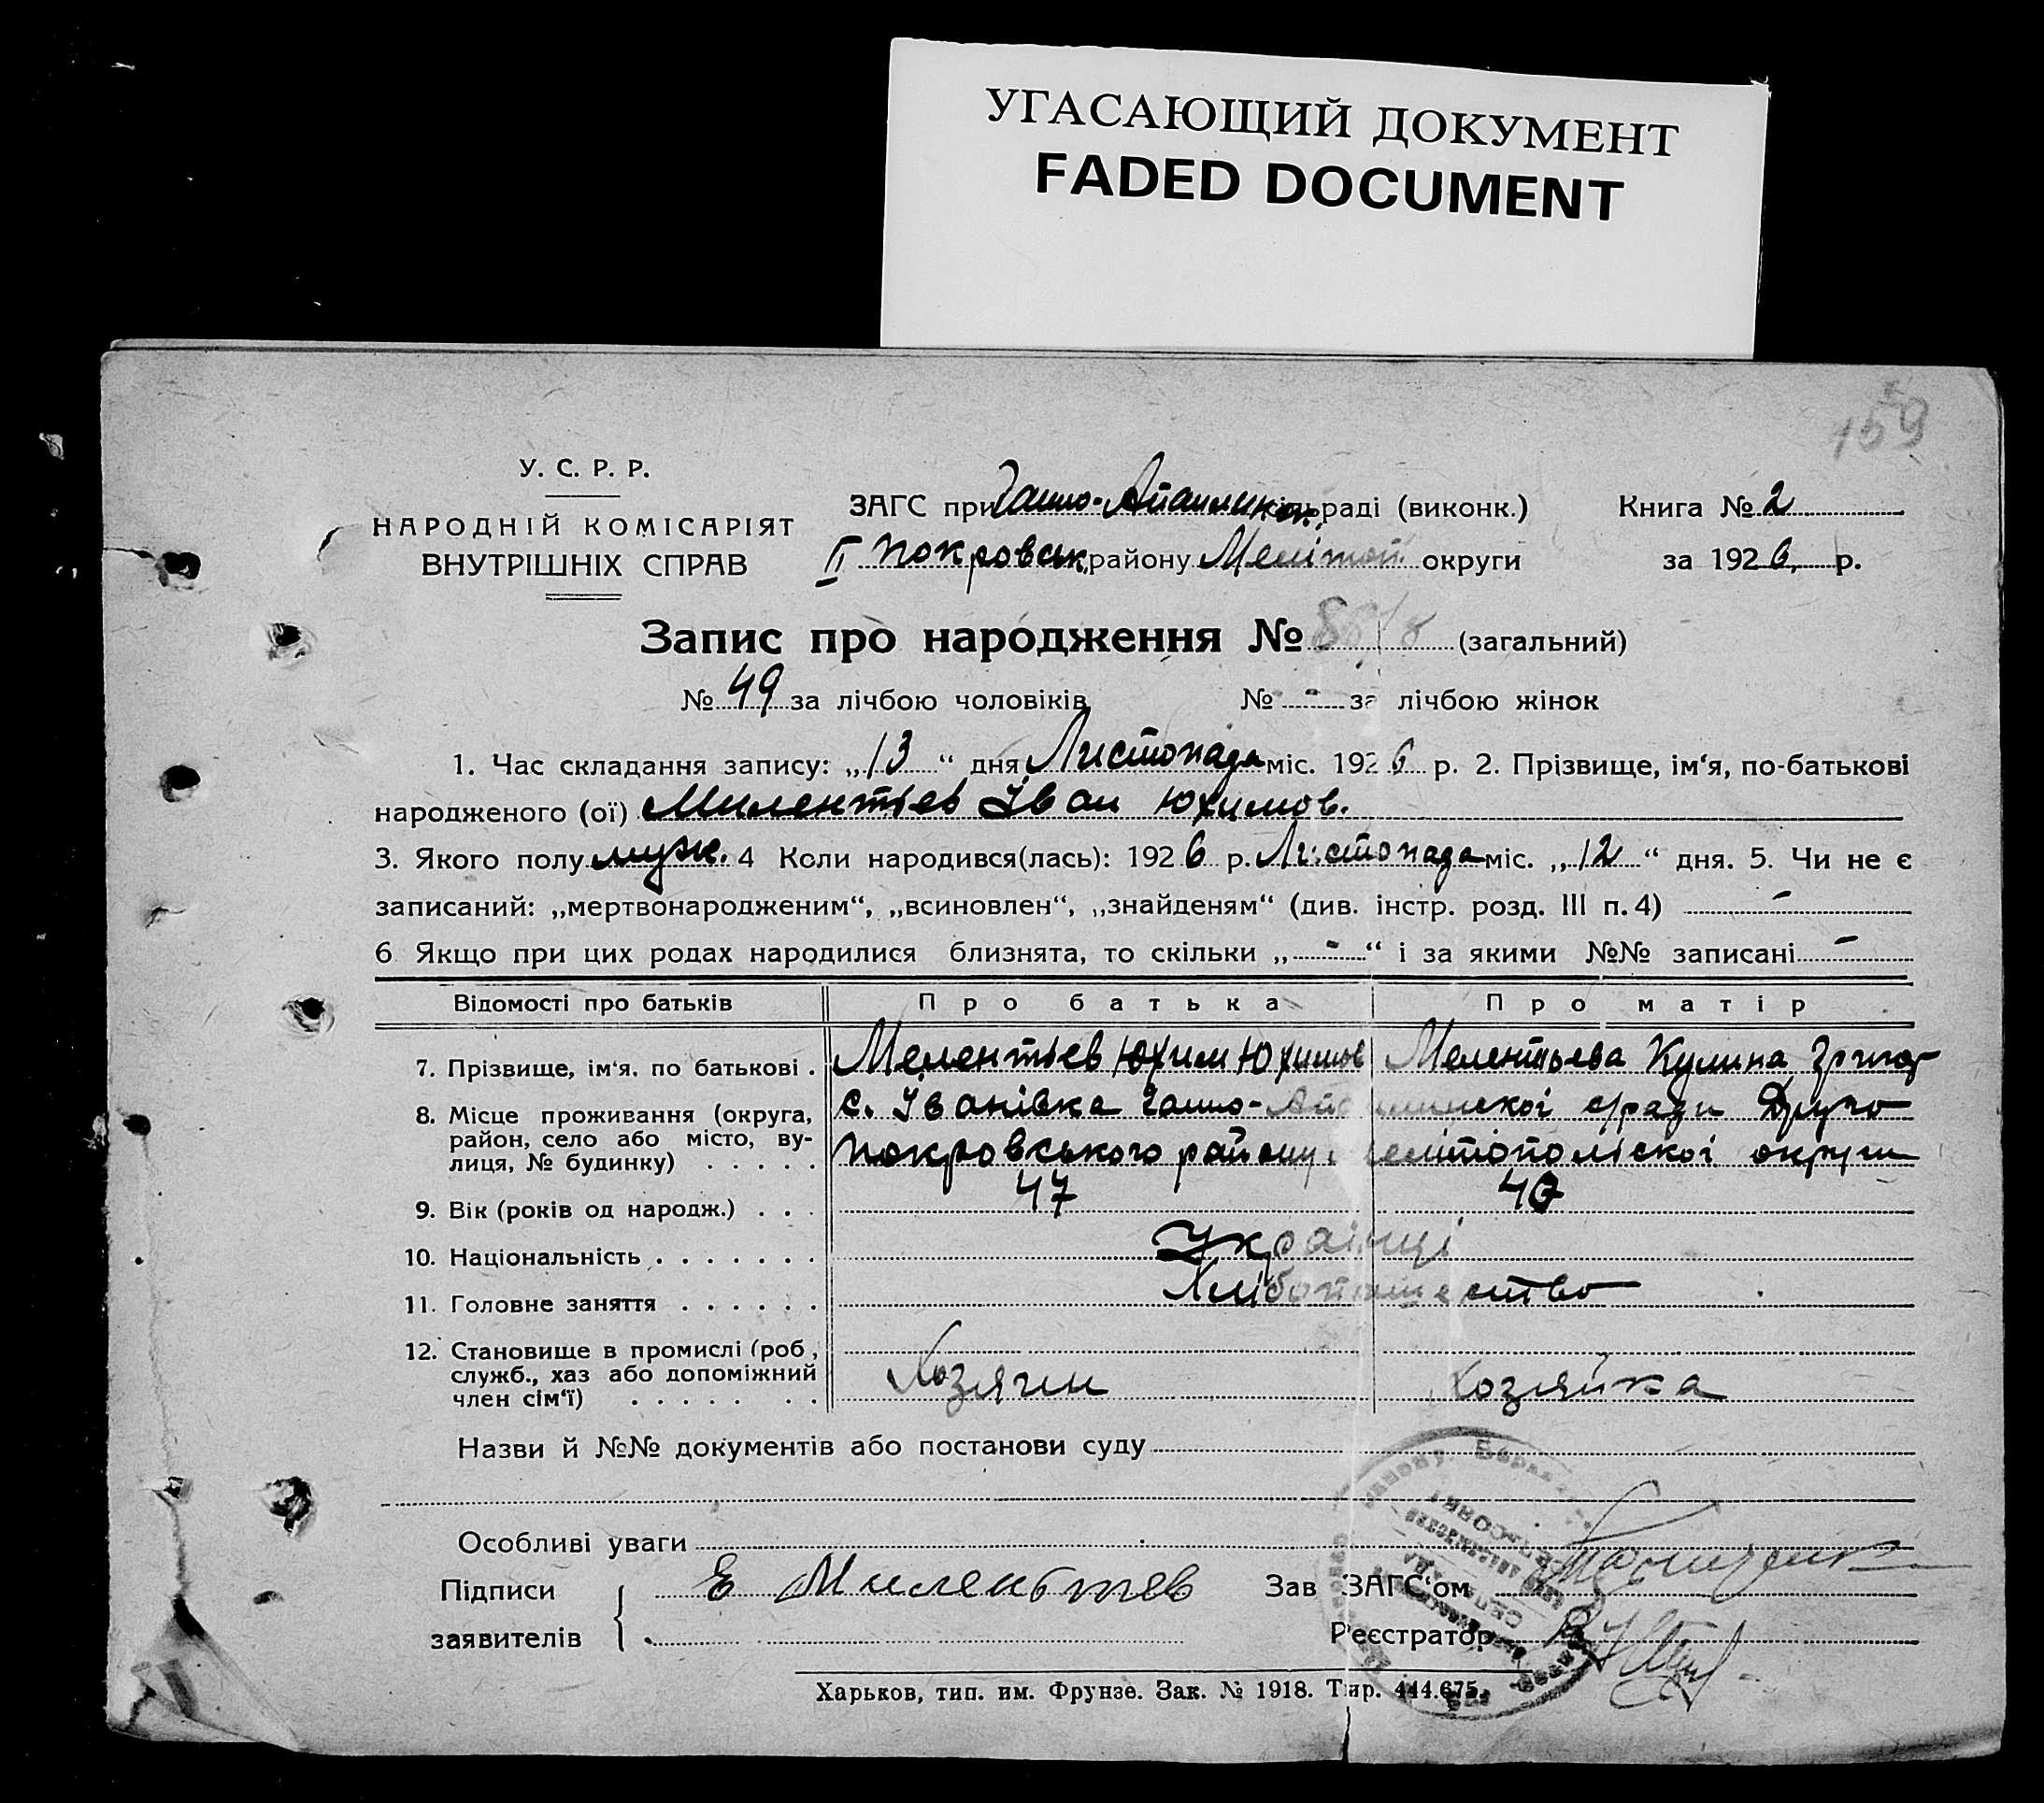 УГАСАЮЩИЙ ДОКУМЕНТ
FADED DOCUMENT
159
У. С. Р. Р.
НАРОДНІЙ КОМІСАРІЯТ
ВНУТРІШНІХ СПРАВ
ЗАГС при раді (виконк.) Книга № 2
II Покровськ. району Меліітоп. округи за 1926, р.
Запис про народження № (загальний)
№ 49 за лічбою чоловіків № - за лічбою жінок
1. Час складання запису: „13“ дня Листопада міс. 1926 р. 2. Прізвище, ім‘я, по-батькові
народженого (ої) Милентьев Іван Юхимов.
3. Якого полу муж. 4 Коли народився(лась): 1926 р. Листопада міс. „12“ дня. 5. Чи не є
записаний: „мертвонародженим“, „всиновлен“, „знайденям“ (див. інстр. розд. III п. 4) -
6 Якщо при цих родах народилися близнята, то скільки „-“ і за якими №№ записані -
Відомості про батьків Про батька Про матір
7. Прізвище, ім‘я. по батькові . Мелентьев Юхим Юхимов Мелентьева Кулина Григор
8. Місце проживання (округа, с. Іванівка с/ради Друго
район, село або місто, ву-
лиця, № будинку) . . . . . Покровського району Мелітопольскої округи
9. Вік (років од народж.) . . . 47 40
10. Національність . . . . . . . Українці
11. Головне заняття . . . . . . Хлібопашество
12. Становище в промислі (роб ,
служб., хаз або допоміжний Хозяин Хозяйка
член сім‘ї) . . . . . . .
Назви й №№ документів або постанови суду
Особливі уваги
Підписи Е Милентьев Зав ЗАГС‘ом
заявителів Реєстратор
Харьков, тип. им. Фрунзе. Зак. № 1918. Тир. 444.675.